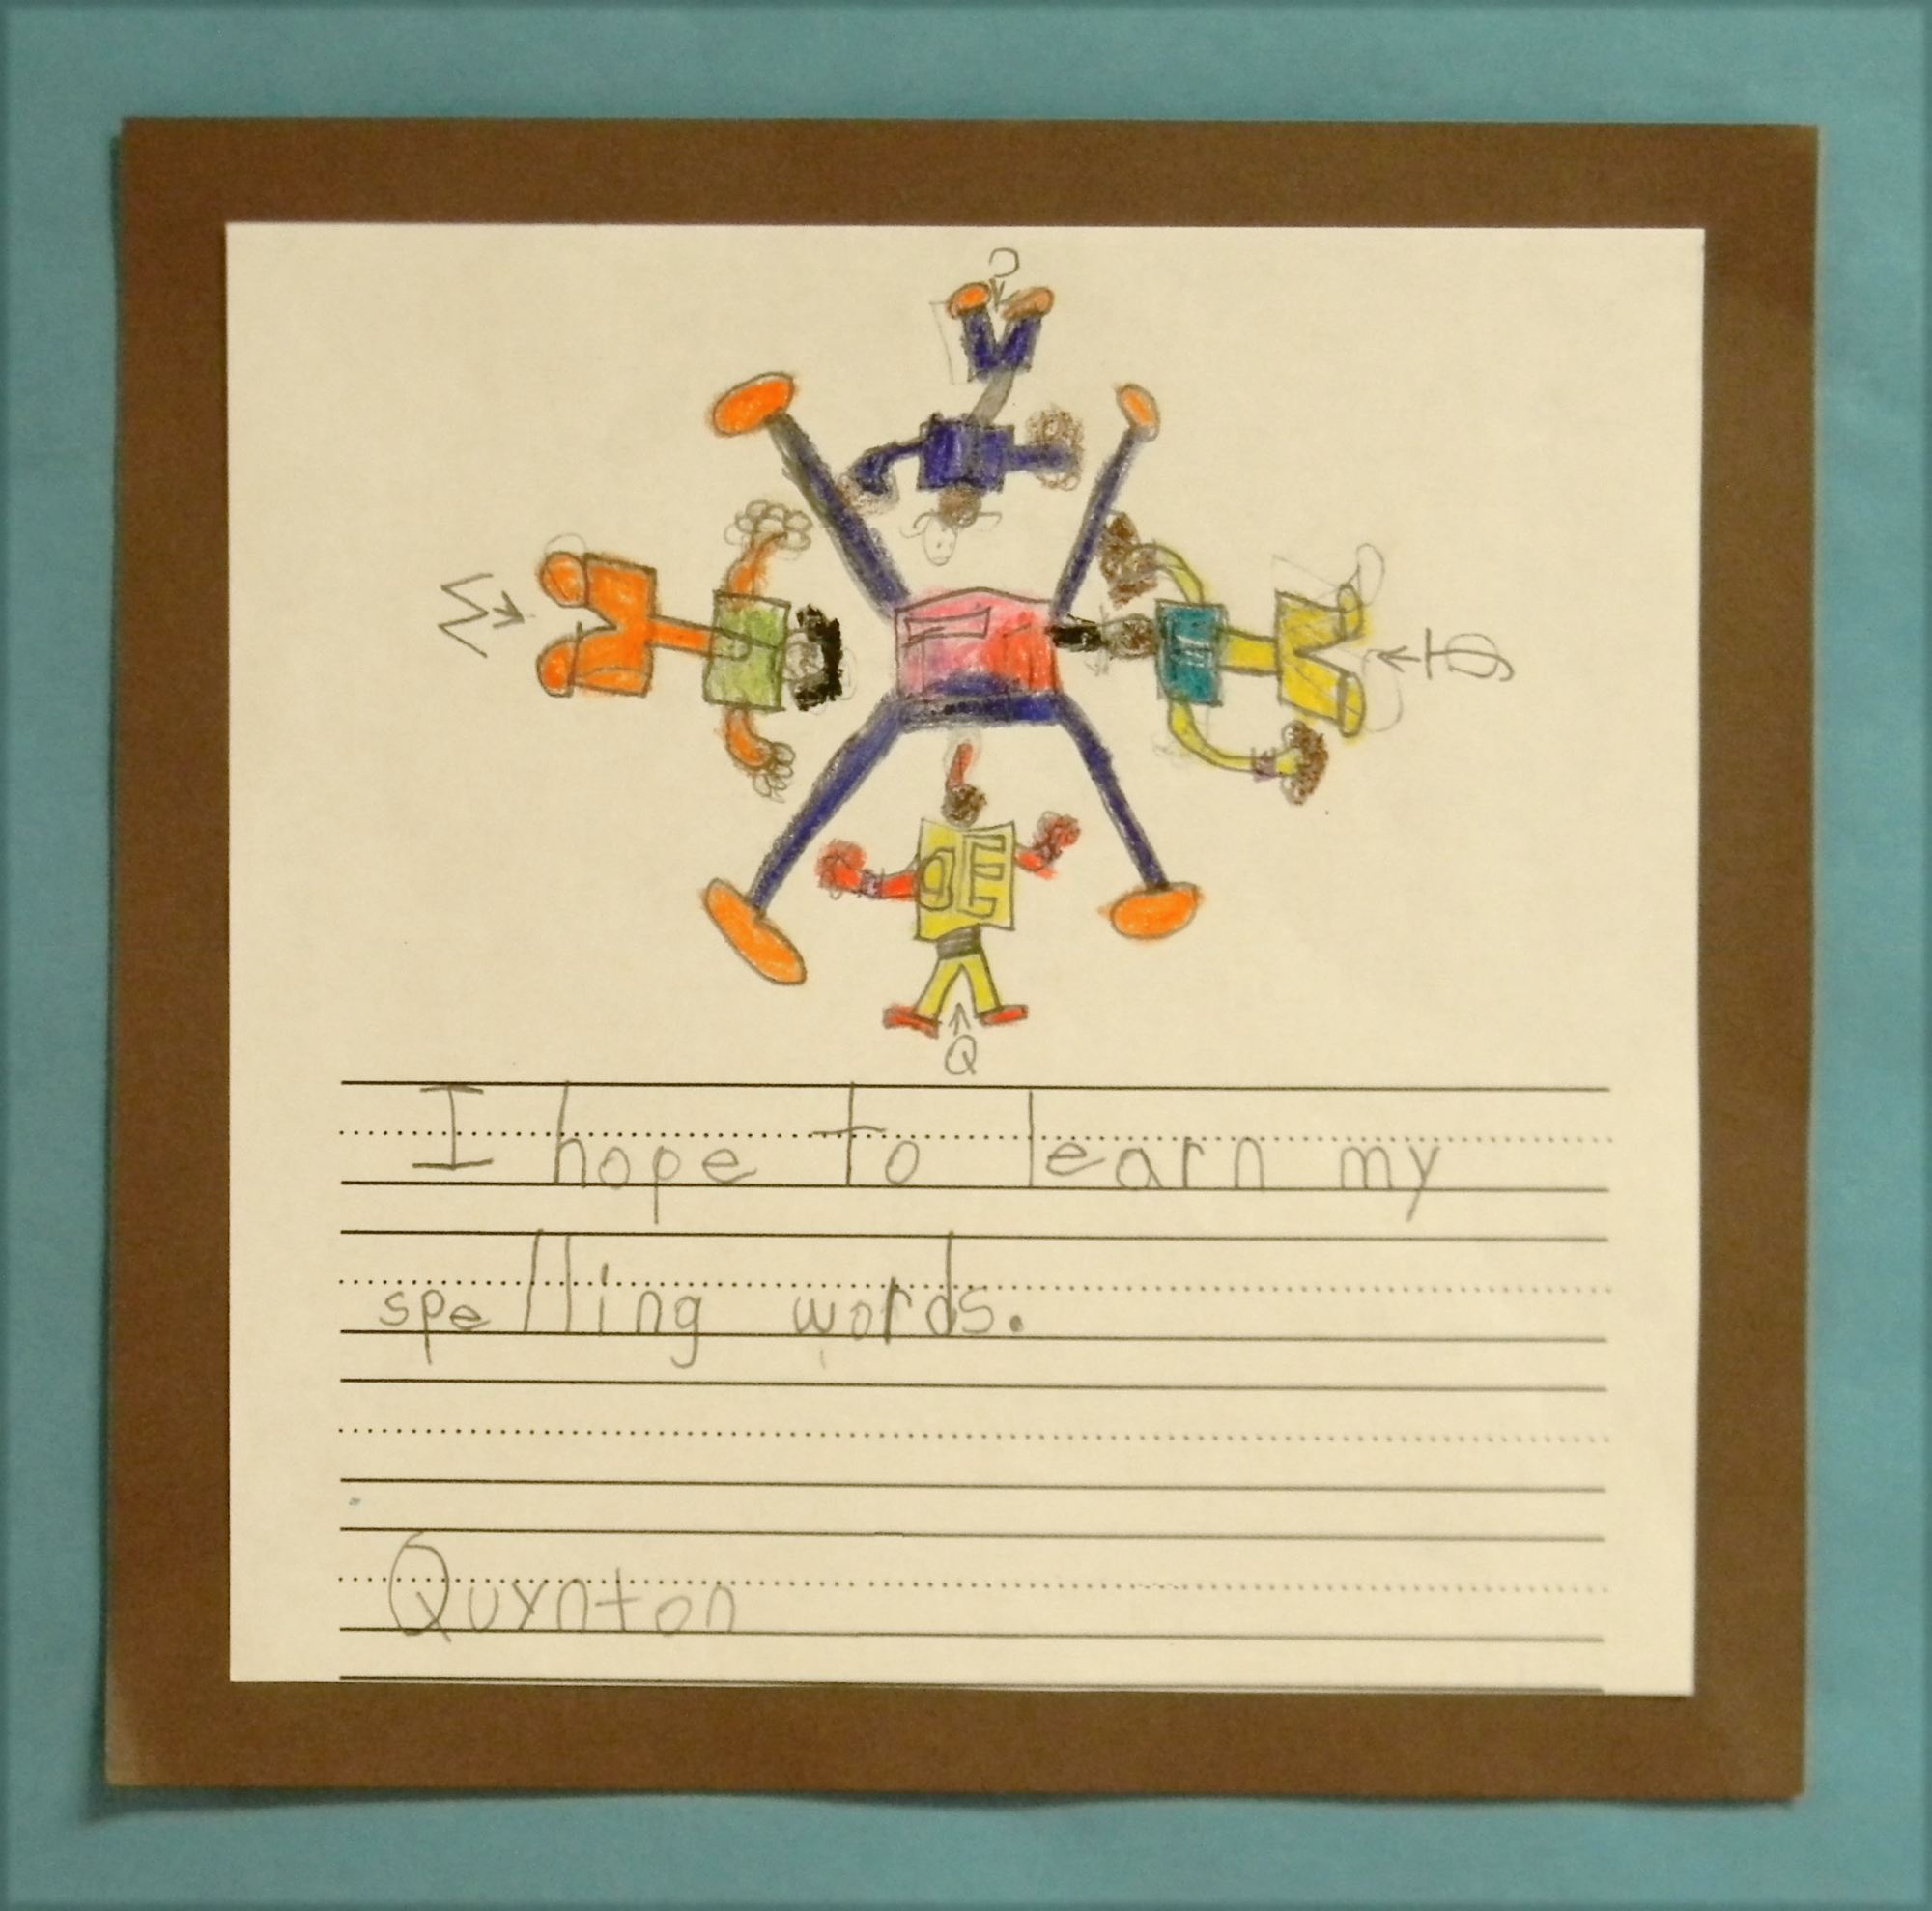 Q
I hope to learn my
spelling words.
Quynton